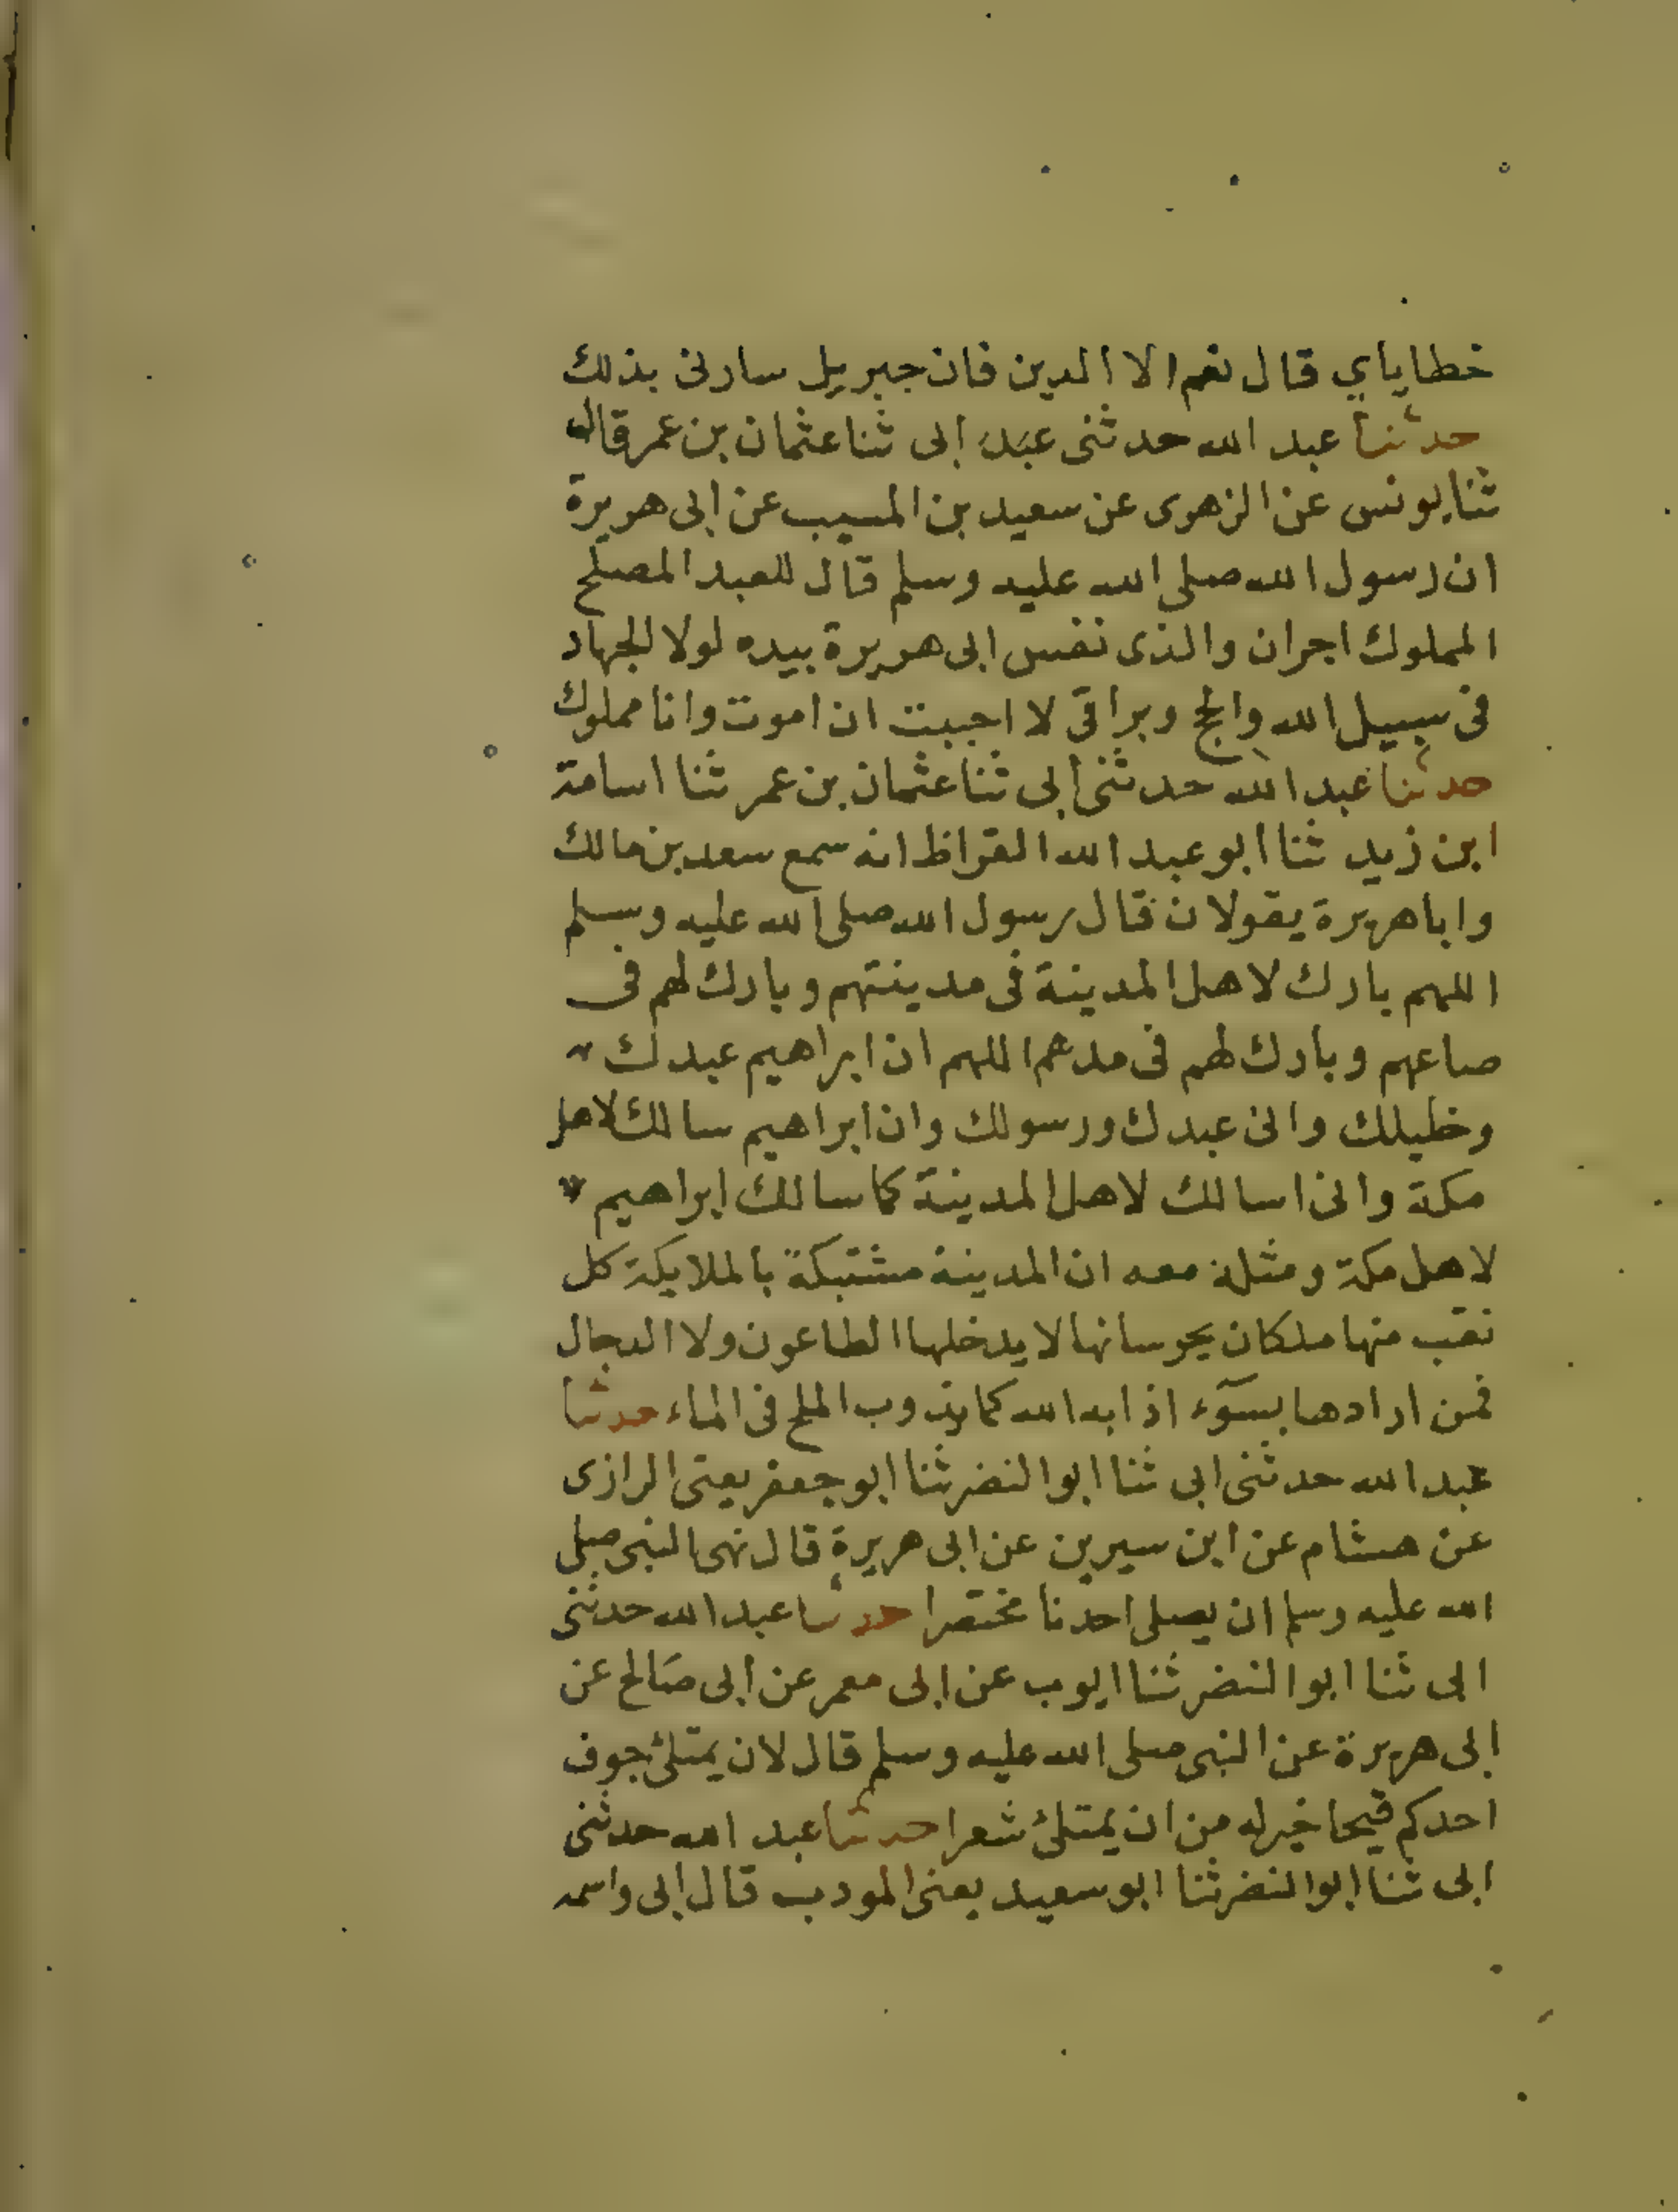 خطاياي قال نعم الا الدين فان جبريل سارنى بذلك
حدثنا عبد الله حدثنى عبد ابى ثنا عثمان بن عمر قال
ثنا يونس عن الزهرى عن سعيد بن المسيب عن ابى هريرة
ان رسول الله صلى الله عليه وسلم قال للعبد المصلح
المملوك اجران والذى نفس ابى هريرة بيده لولا الجهاد
فى سبيل الله والحج وبرا فى لا احببت ان اموت وانا مملوك
حدثنا عبد الله حدثنى ابى ثنا عثمان بن عمر ثنا اسامة
ابن زيد ثنا ابو عبد الله القراظ انه سمع سعد بن مالك
وابا هريرة يقولان قال رسول الله صلى الله عليه وسلم
اللهم بارك لاهل المدينة فى مدينتهم وبارك لهم فى
صاعهم وبارك لهم فى مدهم اللهم ان ابراهيم عبدك
وخليلك وانى عبدك ورسولك وان ابراهيم سالك لاهل
مكة وانى اسالك لاهل المدينة كما سالك ابراهيم
لاهل مكة ومثله معه ان المدينة مشتبكة بالملايكة كل
نقب منها ملكان يحرسانها لا يدخلها الطاعون ولا الدجال
فمن ارادها بسوء اذابه الله كما يذوب الملح فى الماء حدثنا
عبد الله حدثنى ابى ثنا ابو النضر ثنا ابو جعفر يعنى الرازى
عن هشام عن ابن سيرين عن ابى هريرة قال نهى النبى صلى
الله عليه وسلم ان يصلى احدنا مختصرا حدثنا عبد الله حدثنى
ابى ثنا ابو النضر ثنا ايوب عن ابى معمر عن ابى صالح عن
ابى هريرة عن النبى صلى الله عليه وسلم قال لان يمتلئ جوف
احدكم قيحا خير له من ان يمتلئ شعرا حدثنا عبد الله حدثنى
ابى ثنا ابو النضر ثنا ابو سعيد يعنى المودب قال ابى واسمه